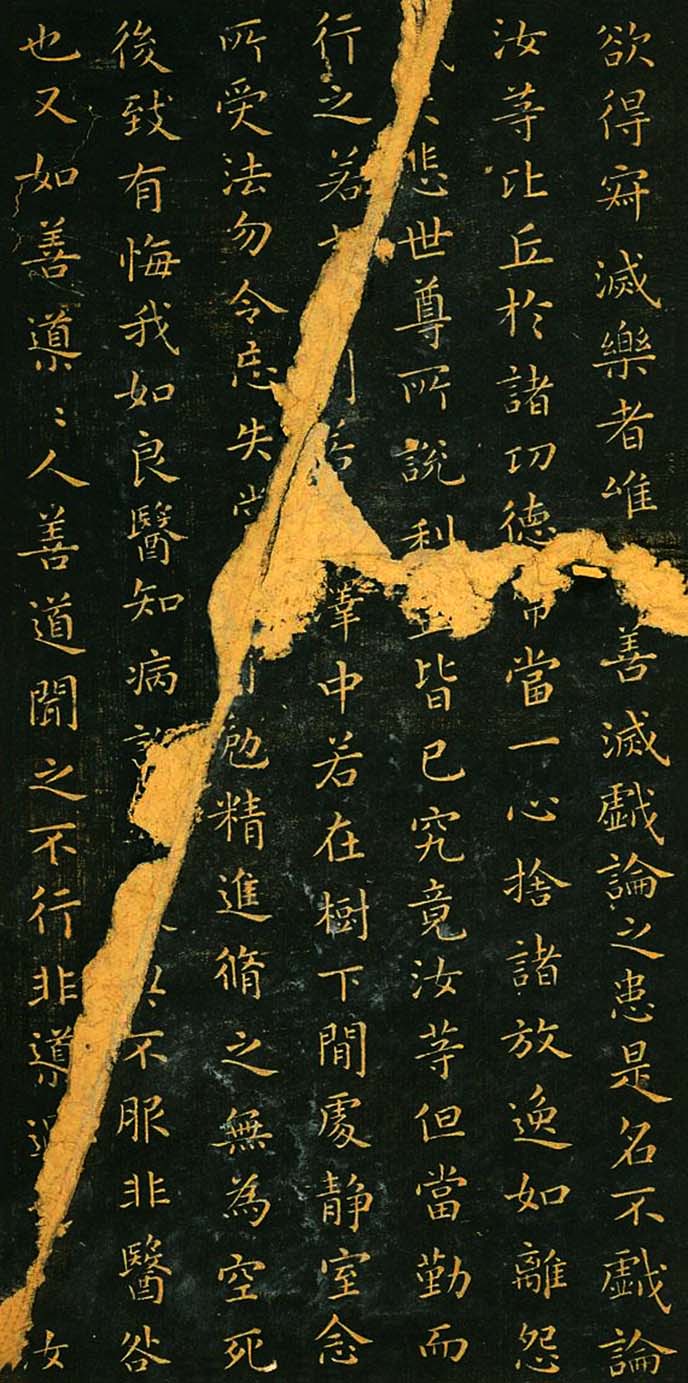 欲得寂滅樂者唯善滅戲論之患是名不戲論
汝等比丘於諸功德常當一心捨諸放逸如離怨
悲世尊所說利益皆已究竟汝等但當勤而
行之若中若在樹下閒處靜室念
所受法勿令忘失勉精進脩之無為空死
後致有悔我如良醫知病不服非醫咎
也又如善導〻人善道聞之不行非導過汝